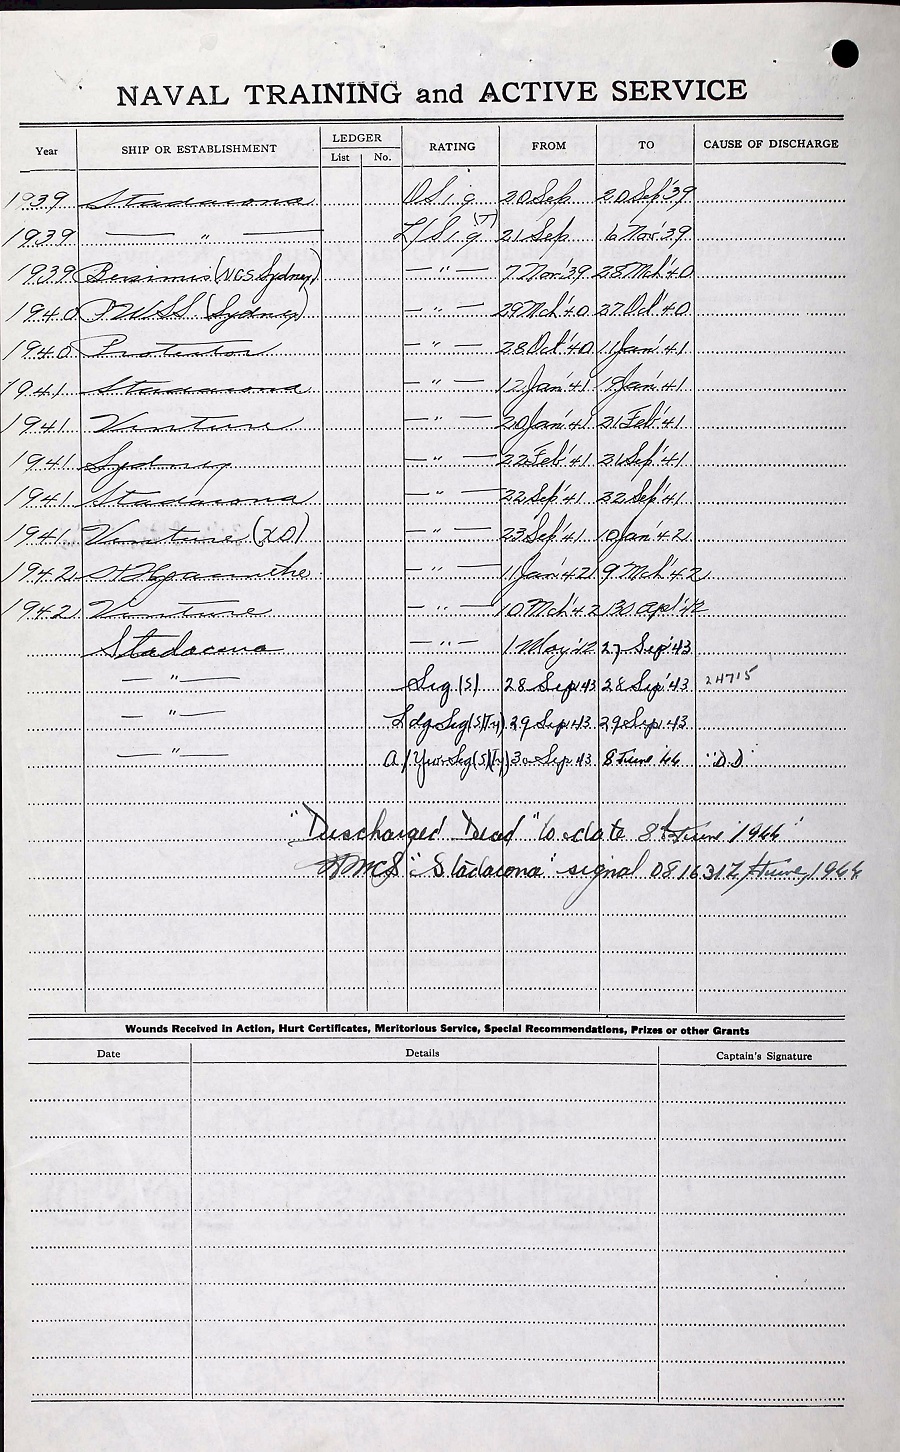 NAVAL TRAINING and ACTIVE SERVICE
Year SHIP OR ESTABLISHMENT LEDGER List No. RATING FROM TO CAUSE OF DISCHARGE
1939 Stadacona OSig 20 Sep 20 Sep'39
1939 — " — L/Sig(T) 21 Sep 6 Nov'39
1939 (NCS Sydney) — " — 7 Nov'39 28 Mch'40
1940 PWSS (Sydney) — " — 29 Mch'40 27 Oct'40
1940 Protector — " — 28 Oct'40 11 Jan'41
1941 Stadacona — " — 12 Jan'41 19 Jan'41
1941 Venture — " — 20 Jan'41 21 Feb'41
1941 Sydney — " — 22 Feb'41 21 Sep'41
1941 Stadacona — " — 22 Sep'41 22 Sep'41
1941 Venture (XD) — " — 23 Sep'41 10 Jan'42
1942 St Hyacinthe — " — 11 Jan'42 9 Mch'42
1942 Venture — " — 10 Mch'42 30 Apl'42
Stadacona — " — 1 May'42 27 Sep'43
— " — Sig (S) 28 Sep 43 28 Sep'43 24715
— " — Ldg Sig(S)(Ty) 29 Sep 43 29 Sep 43
— " — A/ Sig(S)(Ty) 30 Sep 43 8 June '44 "D.D"
"Discharged Dead" to date 8th June 1944
HMCS "Stadacona" signal 081631Z/June/1944
Wounds Received in Action, Hurt Certificates, Meritorious Service, Special Recommendations, Prizes or other Grants
Date Details Captain's Signature